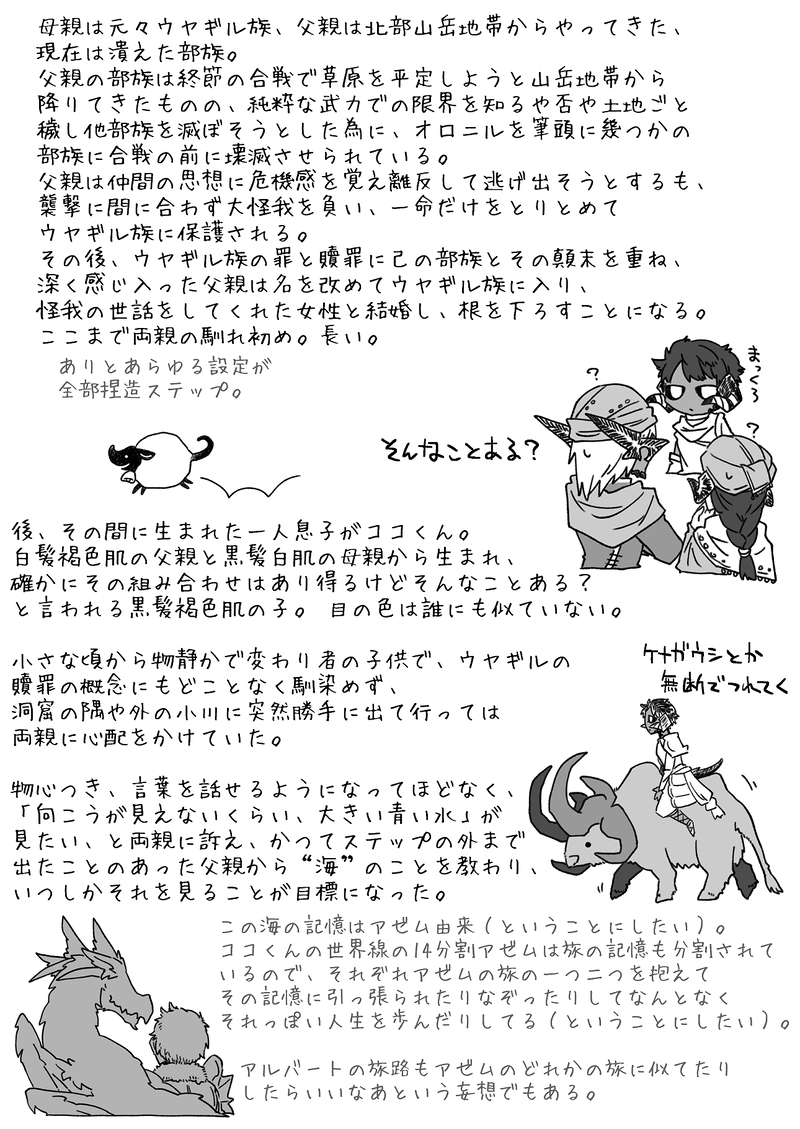 母親は元々ウヤギル族、父親は北部山岳地帯からやってきた、
現在は潰えた部族。
父親の部族は終節の合戦で草原を平定しようと山岳地帯から
降りてきたものの、純粋な武力での限界を知るや否や土地ごと
穢し他部族を滅ぼそうとした為に、オロニルを筆頭に幾つかの
部族に合戦の前に壊滅させられている。
父親は仲間の思想に危機感を覚え離反して逃げ出そうとするも、
襲撃に間に合わず大怪我を負い、一命だけをとりとめて
ウヤギル族に保護される。
その後、ウヤギル族の罪と贖罪に己の部族とその顛末を重ね、
深く感じ入った父親は名を改めてウヤギル族に入り、
怪我の世話をしてくれた女性と結婚し、根を下ろすことになる。
ここまで両親の馴れ初め。長い。
ありとあらゆる設定が
全部捏造ステップ。
まっくろ
?
?
そんなことある?
後、その間に生まれた一人息子がココくん。
白髪褐色肌の父親と黒髪白肌の母親から生まれ、
確かにその組み合わせはあり得るけどそんなことある?
と言われる黒髪褐色肌の子。 目の色は誰にも似ていない。
小さな頃から物静かで変わり者の子供で、ウヤギルの
贖罪の概念にもどことなく馴染めず、
洞窟の隅や外の小川に突然勝手に出て行っては
両親に心配をかけていた。
ケナガウシとか
無断でつれてく
物心つき、言葉を話せるようになってほどなく、
「向こうが見えないくらい、大きい青い水」が
見たい、と両親に訴え、かつてステップの外まで
出たことのあった父親から“海”のことを教わり、
いつしかそれを見ることが目標になった。
この海の記憶はアゼム由来(ということにしたい)。
ココくんの世界線の14分割アゼムは旅の記憶も分割されて
いるので、それぞれアゼムの旅の一つ二つを抱えて
その記憶に引っ張られたりなぞったりしてなんとなく
それっぽい人生を歩んだりしてる(ということにしたい)。
アルバートの旅路もアゼムのどれかの旅に似てたり
したらいいなあという妄想でもある。